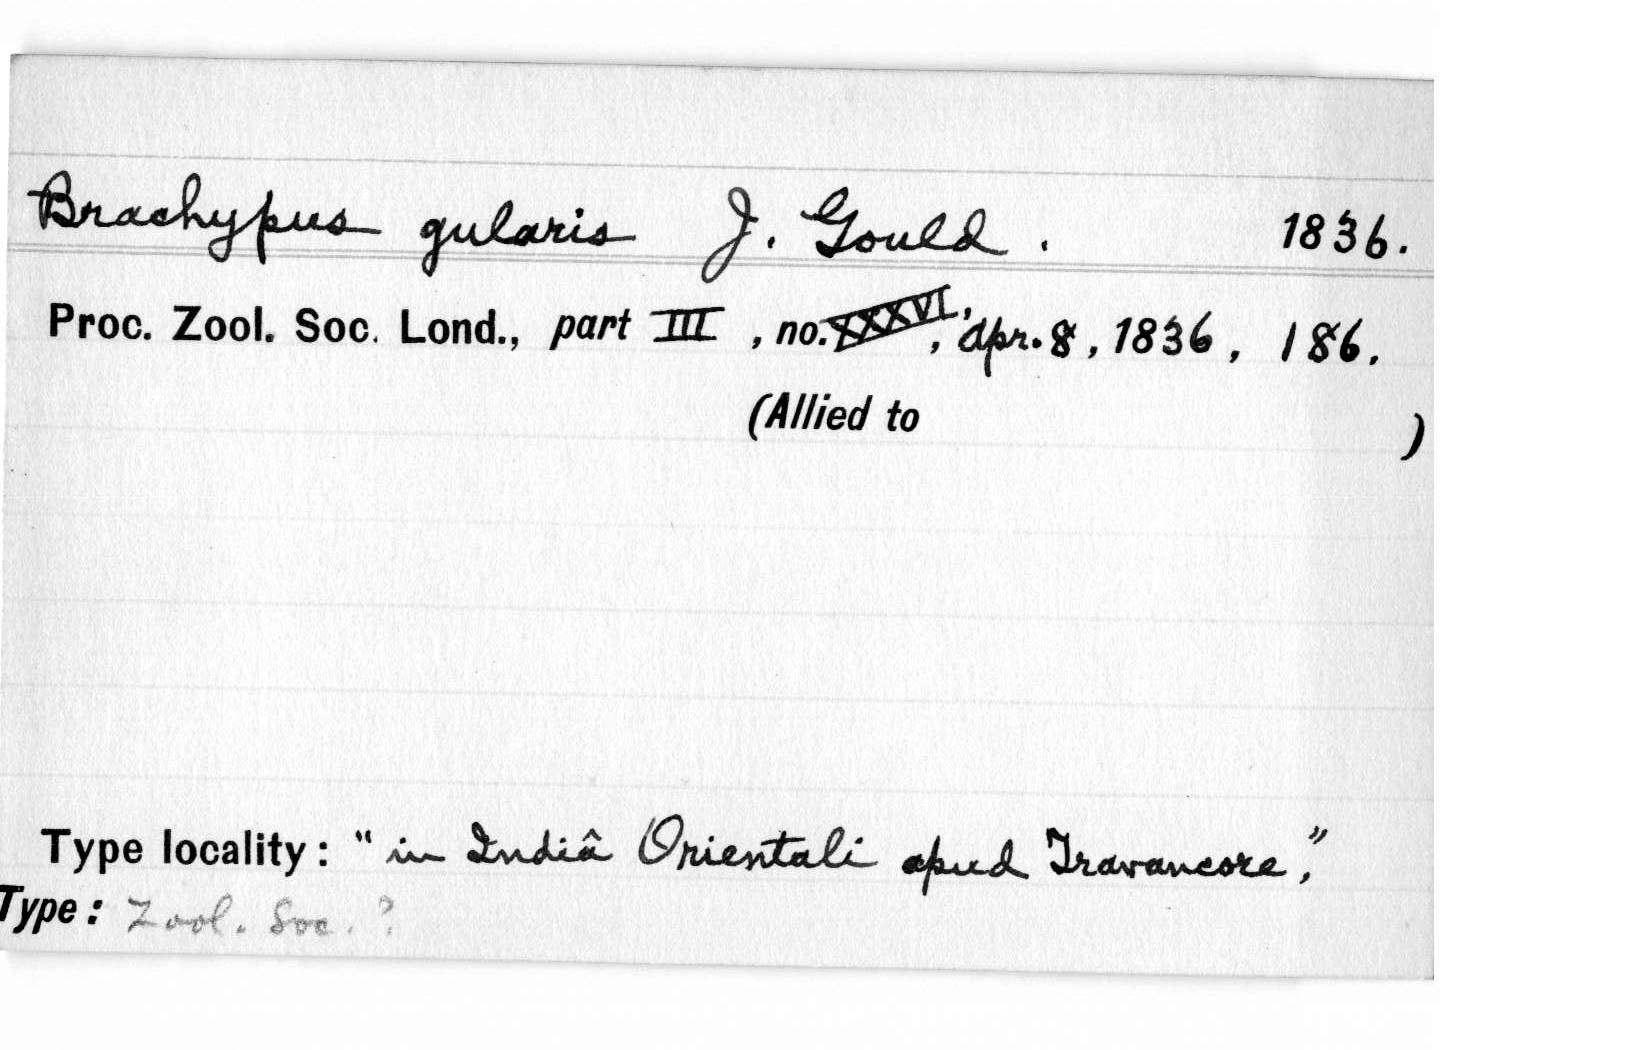 Brachypus gularis J. Gould. 1836.
Proc. Zool. Soc. Lond., part III, no. XXXVI, Apr. 8, 1836, 186.
(Allied to )
Type locality: "in Indiâ Orientali apud Travancore,"
Type: Zool. Soc. ?